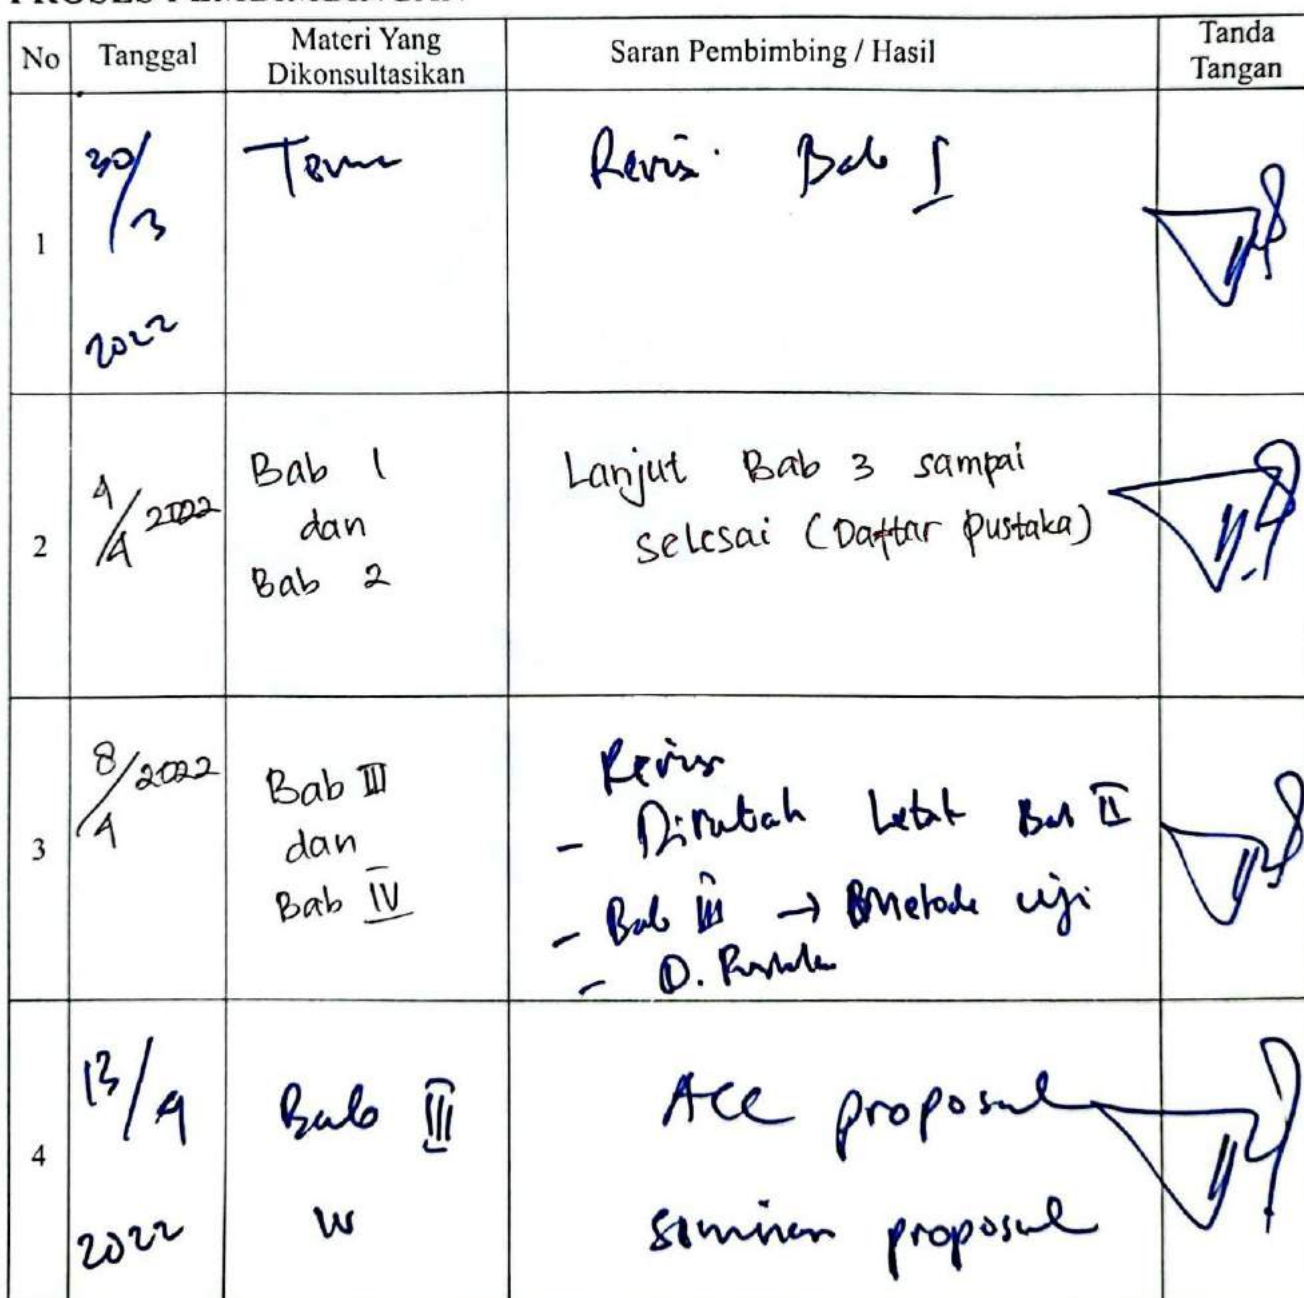 No
Tanggal
Materi Yang
Dikonsultasikan
Saran Pembimbing / Hasil
Tanda
Tangan
1
30/3
2022
Revisi Bab I
2
4/4 2022
Bab 1
dan
Bab 2
Lanjut Bab 3 sampai
selesai (Daftar pustaka)
3
8/4 2022
Bab III
dan
Bab IV
Revisi
- Dirubah Letak Bab II
- Bab III → Metode uji
- D. Pustaka
4
13/4
2022
Bab III
ACC proposal
seminar proposal